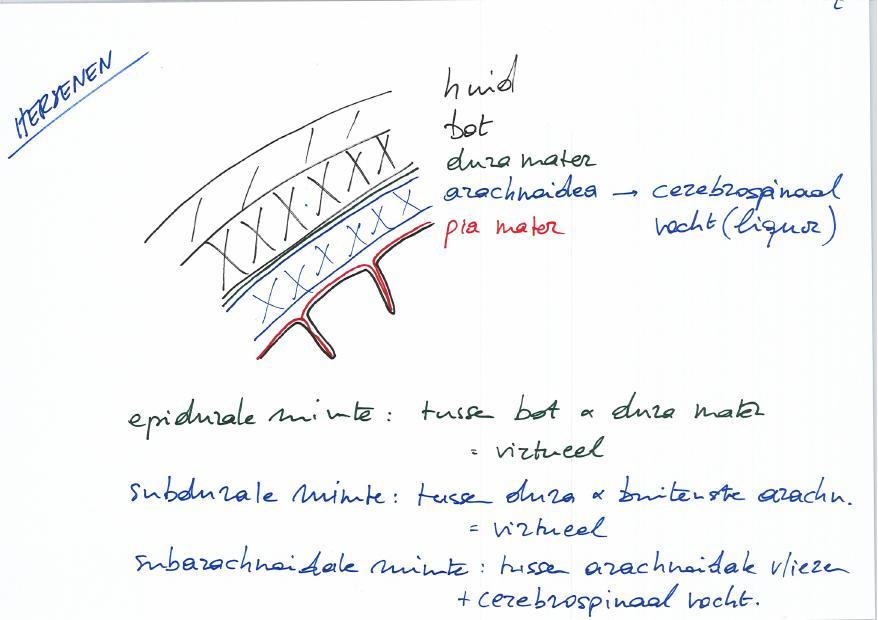 HERSENEN
huid
bot
dura mater
arachnoidea → cerebrospinaal
vocht (liquor)
pia mater
epidurale ruimte : tusse bot & dura mater
= virtueel
subdurale ruimte : tusse dura & buitenste arachn.
= virtueel
subarachnoidale ruimte : tusse arachnoidale vliezen
+ cerebrospinaal vocht.